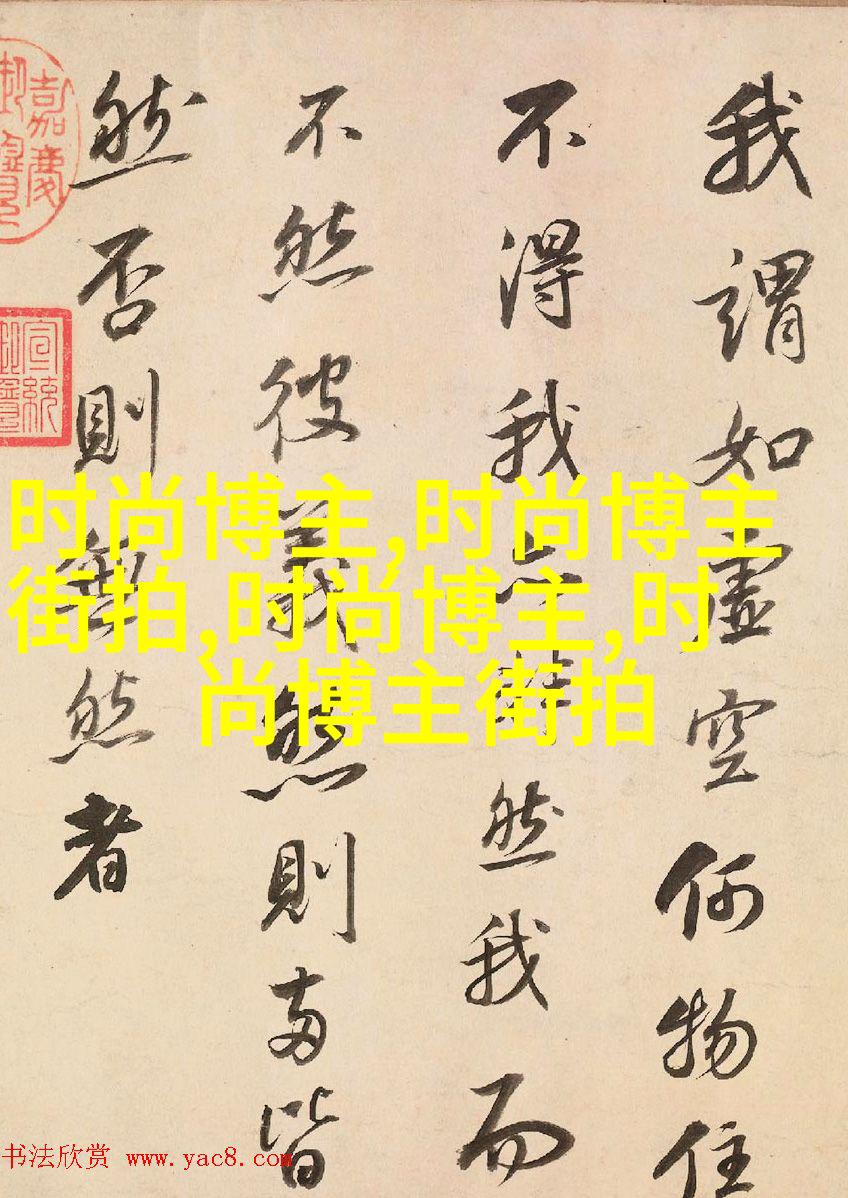 我謂如虛空何物住
不得我然我而
不然彼義然則兩皆
然否則無然者
嘉慶
宣統
时尚博主,时尚博主
街拍,时尚博主,时
尚博主街拍
书法欣赏 www.yac8.com